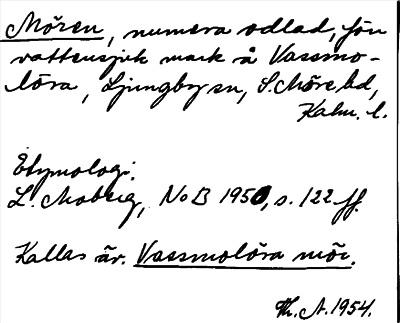 Mören, numera odlad, förr
vattensjuk mark å Vassmo-
lösa, Ljungby sn, S. Möre hd,
Kalm. l.
Etymologi.
L. Moberg, NoB 1950, s. 122 ff.
Kallas äv. Vassmolösa mör.
Th. A. 1954.